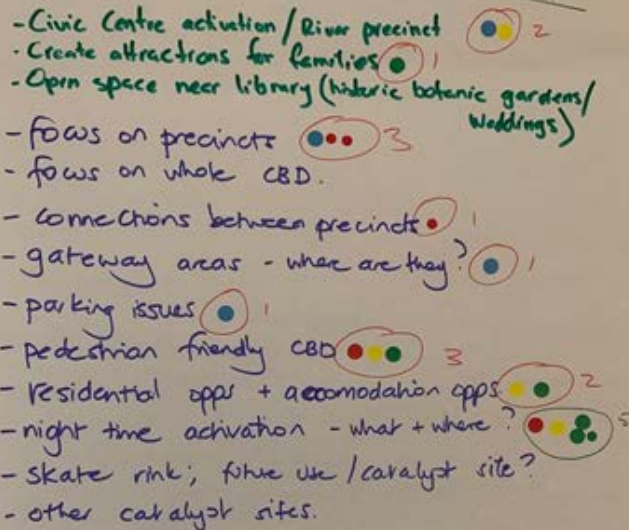 - Civic Centre activation / River precinct 2
- Create attractions for families 1
- Open space near library (historic botanic gardens/
weddings)
- focus on precincts 3
- focus on whole CBD.
- connections between precincts 1
- gateway areas - where are they? 1
- parking issues 1
- pedestrian friendly CBD 3
- residential opps + accomodation opps 2
- night time activation - what + where? 5
- skate rink; future use / catalyst site?
- other catalyst sites.